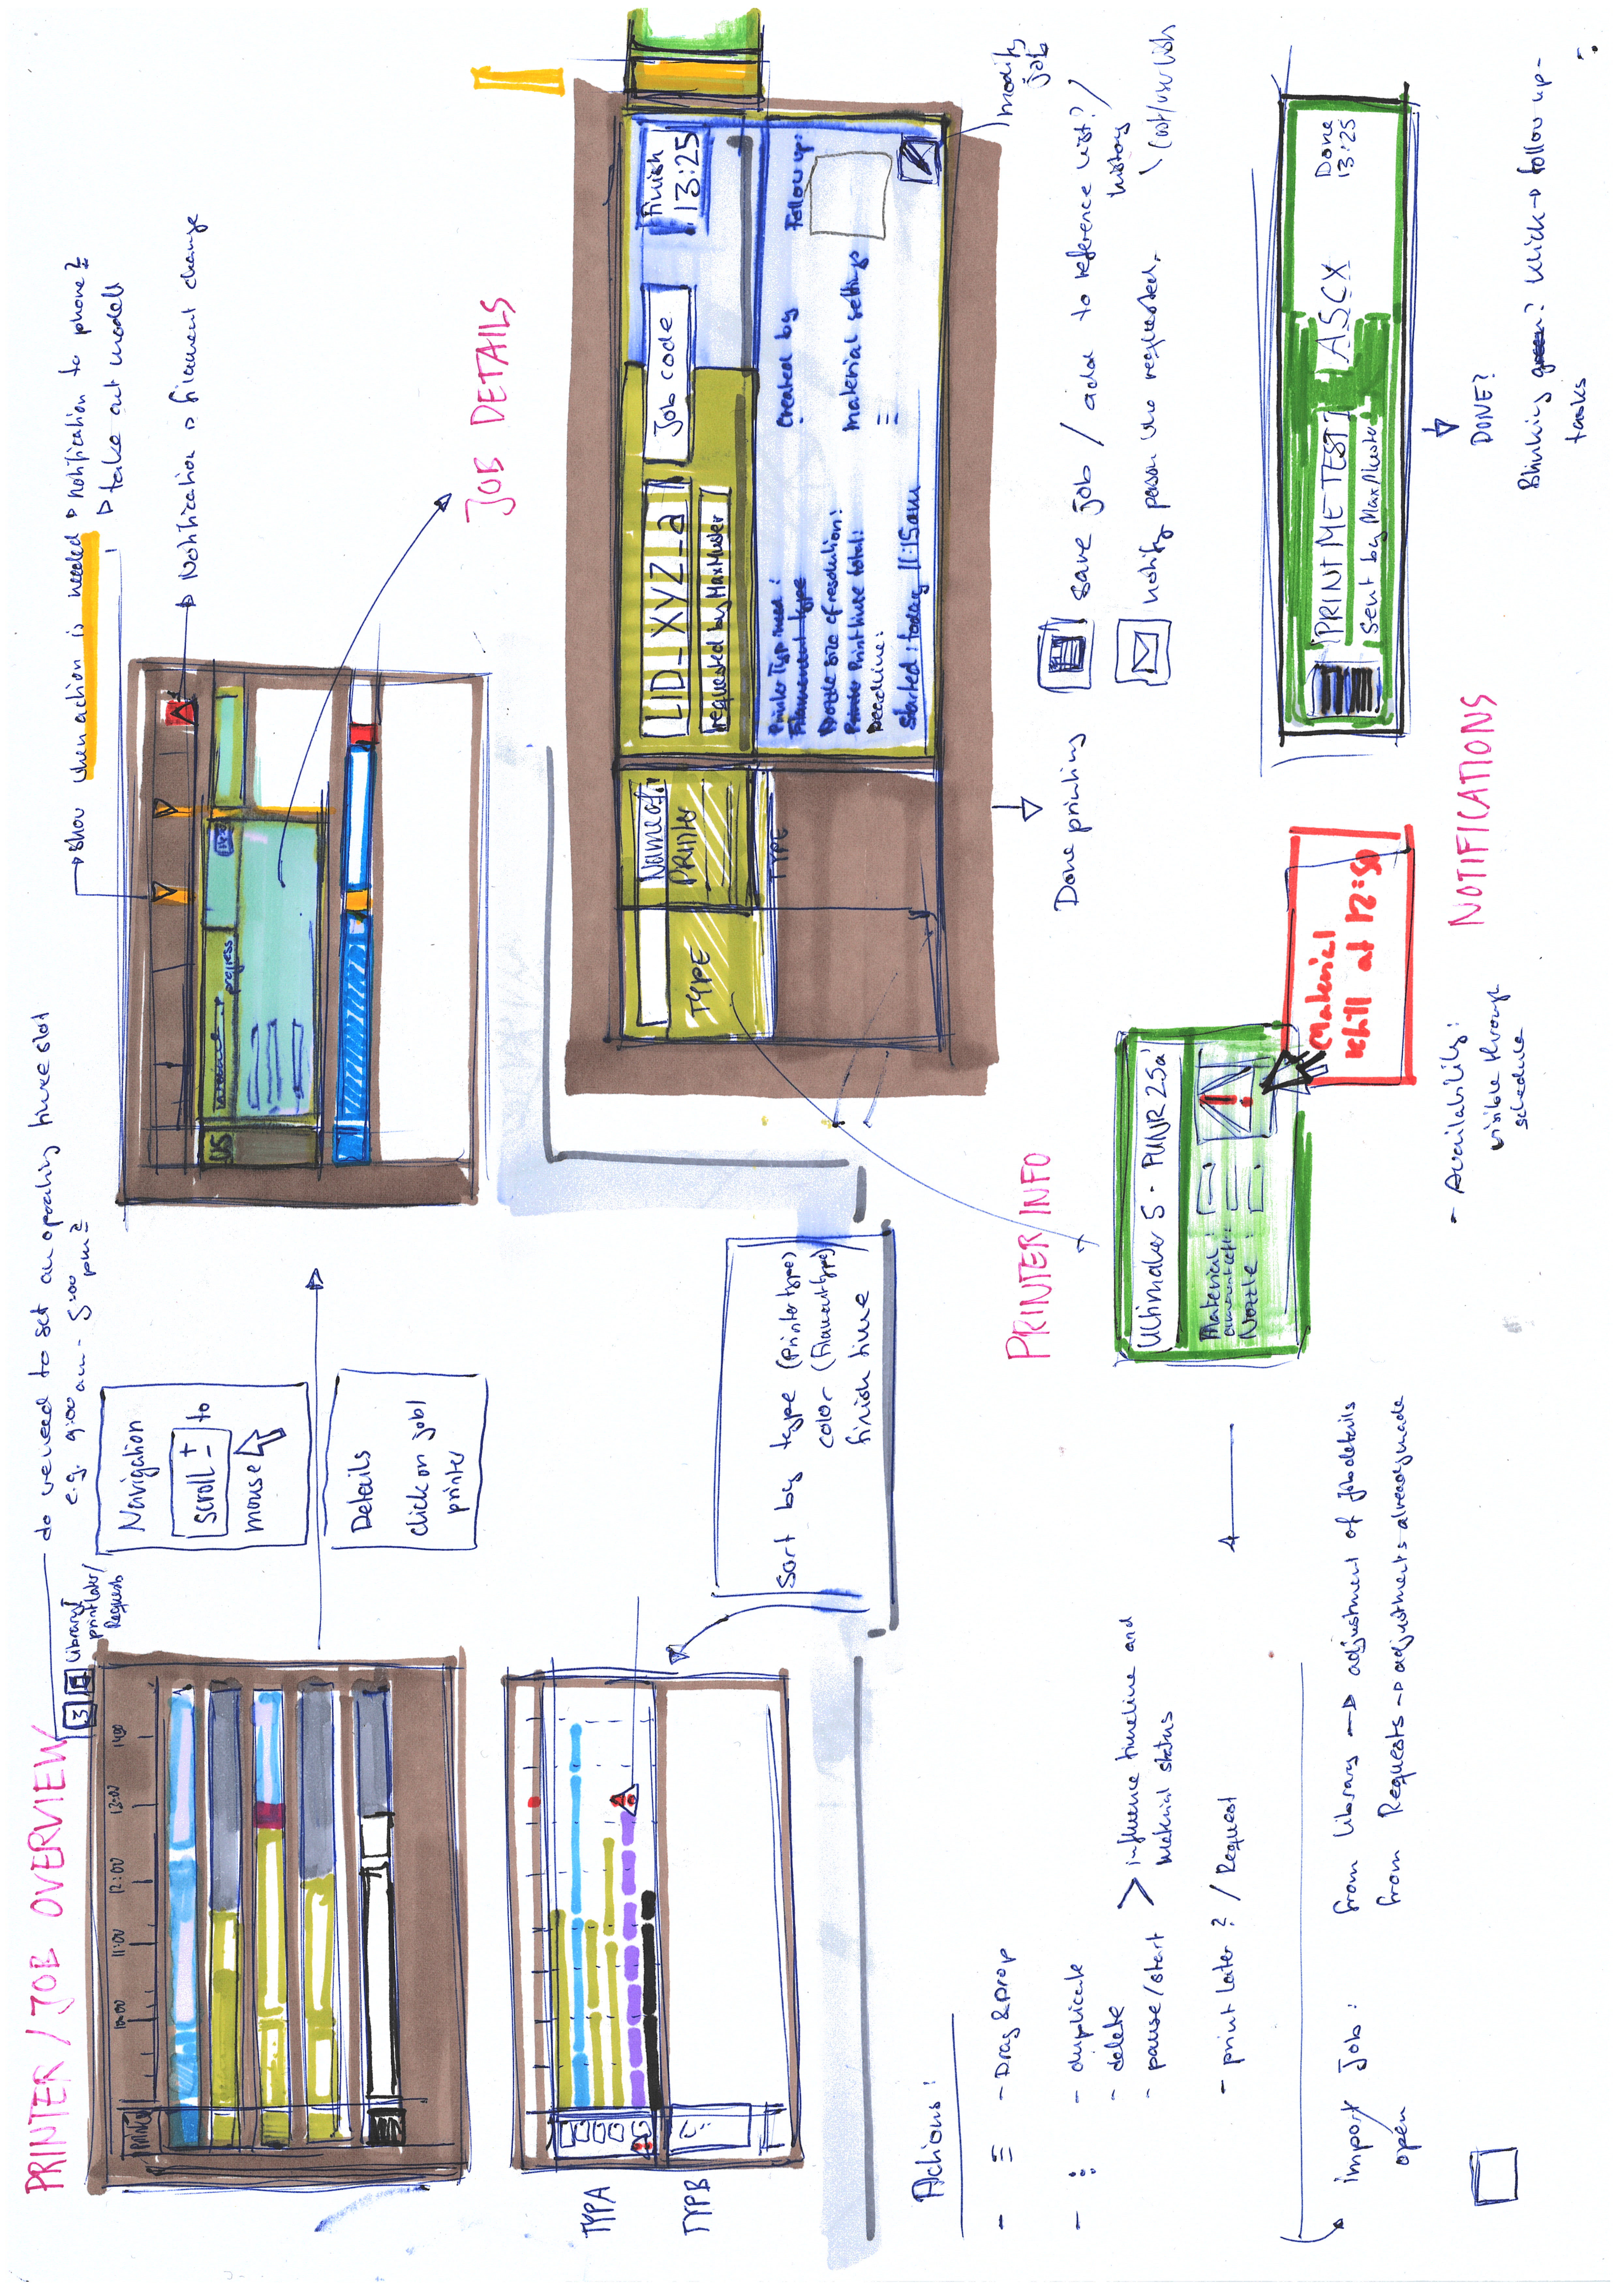 PRINTER / JOB OVERVIEW
do we need to set an operating timeslot
e.g. 9:00 am - 5:00 pm?
3
Library/
print later/
Request
10:00
11:00
12:00
13:00
1400
Navigation
scroll ± to
mouse
Details
click on job/
printer
show when action is needed
notification to phone?
take out model
Notification filament change
progress
JOB DETAILS
TYPA
TYPB
Sort by type (Printertype)
color (Filamenttype)
finish time
TYPE
Name of
PRINTER
TYPE
LID_XYZ_a
requested by MaxMuster
Job code
Finish
13:25
Printer Typ need:
Filamenent type
Nozzle size of resolution:
Print time total:
Deadline:
Started: today 11:15am
Created by
material settings
Follow up:
modify
job
Done printing
save job / add to reference list? /
history
notify person who requested.
Actions:
- Drag & Drop
- duplicate
- delete
- pause/start
> influence timeline and
Material status
- print later? / Request
import Job:
open
from library adjustment of jobdetails
from Requests adjustments already made
PRINTER INFO
Ultimaker S - PUNR 25a
Material:
amount left:
Nozzle:
!
Material
till at 12:50
NOTIFICATIONS
- Availability:
visible through
schedule
PRINT ME TEST
ASCX
Sent by MaxMuster
Done
13:25
DONE?
Blinking green? klick follow up-
tasks